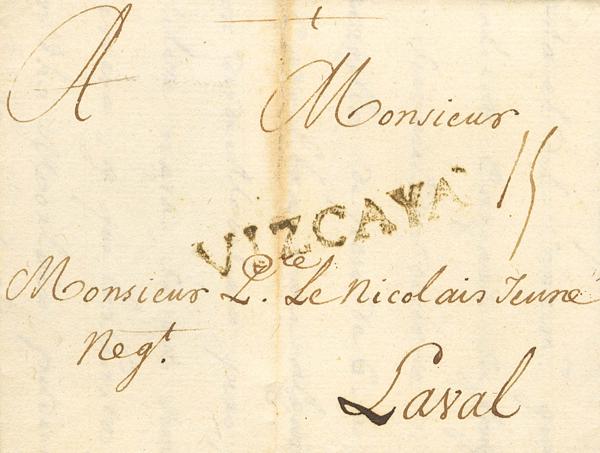 A Monsieur
15
VIZCAYA
Monsieur P.re Le Nicolais Jeune
Neg.t
Laval